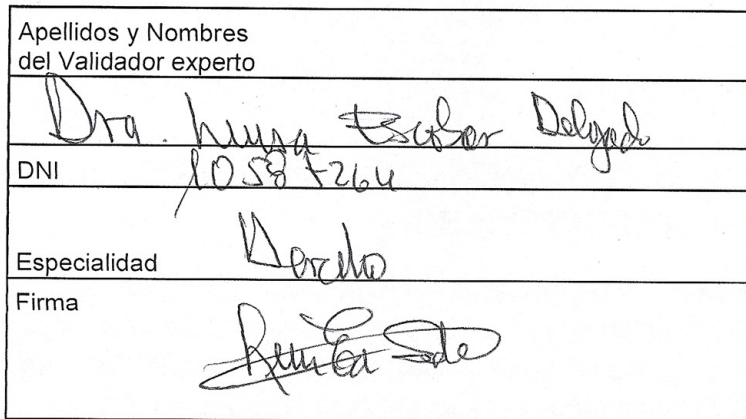 Apellidos y Nombres
del Validador experto
Dra. Luisa Escobar Delgado
DNI 10587264
Especialidad Derecho
Firma